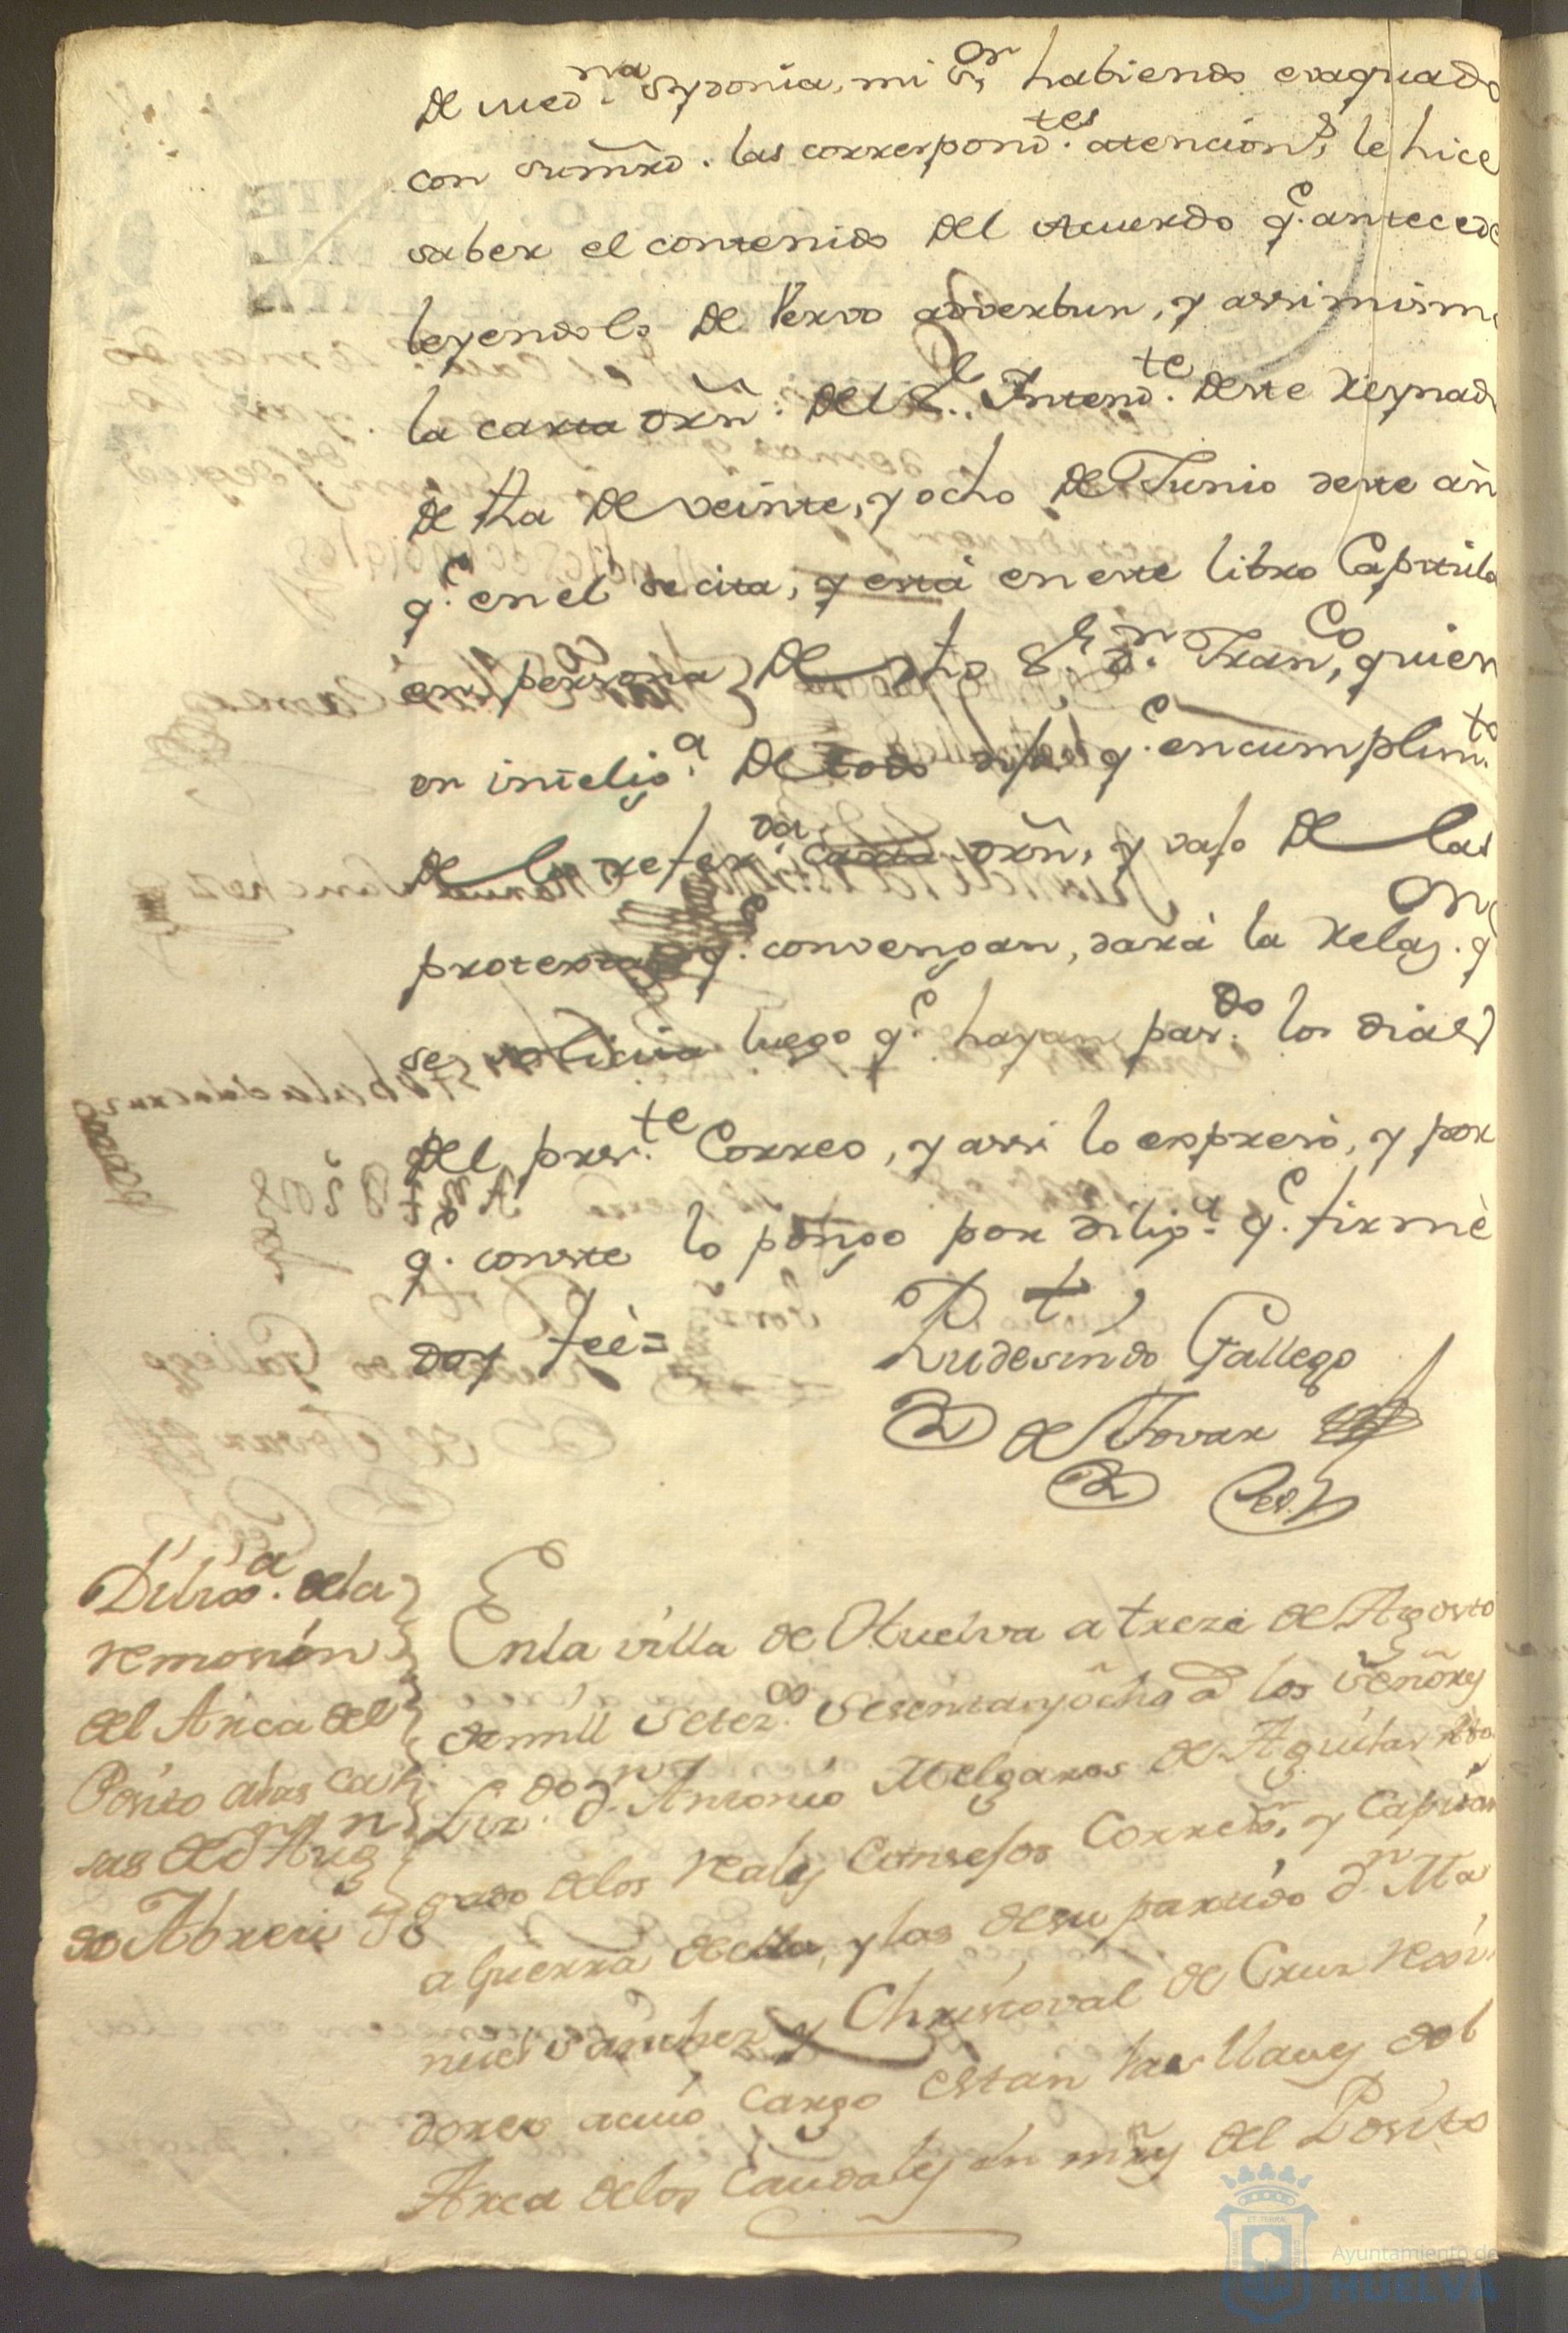 de med.na sydonia, mi S.or habiendo evaquado
con sumrd. las correspond.tes atencion.s le hice
saber el contenido del acuerdo q.e antecede
leyendolo de Vervo adverbun, y assi mismo
la carta orn. del S.r Intend.te deste Reynado
de fha de veinte, y ocho de Junio deste añ
q.e en el se cita, y està en este libro Capitula
en persona de dho S.r d.n Fran.co, quien
en intelig.a de todo dijo q.e en cumplim.to
de la refer.da carta orn, y vajo de las
protextas q.e convengan, darà la Relaz.on q
se solicita luego q.e hayan pas.do los dias
del pres.te Correo, y assi lo expresò, y por
q.e conste lo pongo por dilig.a q.e firmè
doy feè=
Rudesindo Gallego
de Tovar
Diliga. dela
remosion
del Arca del
Posito alas ca
sas de dn Aug
do Abreu
En la villa de Huelva a treze de Agosto
de mill Setez.os Sesenta y ocho a.s los Señores
Liz.do d.n Antonio Melgarexo de Aguilar Abo
gado delos Reales Consejos Correg.r, y Capitan
a Guerra de ella, y las de su partido d.n Ma
nuel Sanchez y Christoval de Cruz Rexi
dores acuio cargo estan las llaves del
Arca delos Caudales en mrs del Posito
Ayuntamiento de
HUELVA